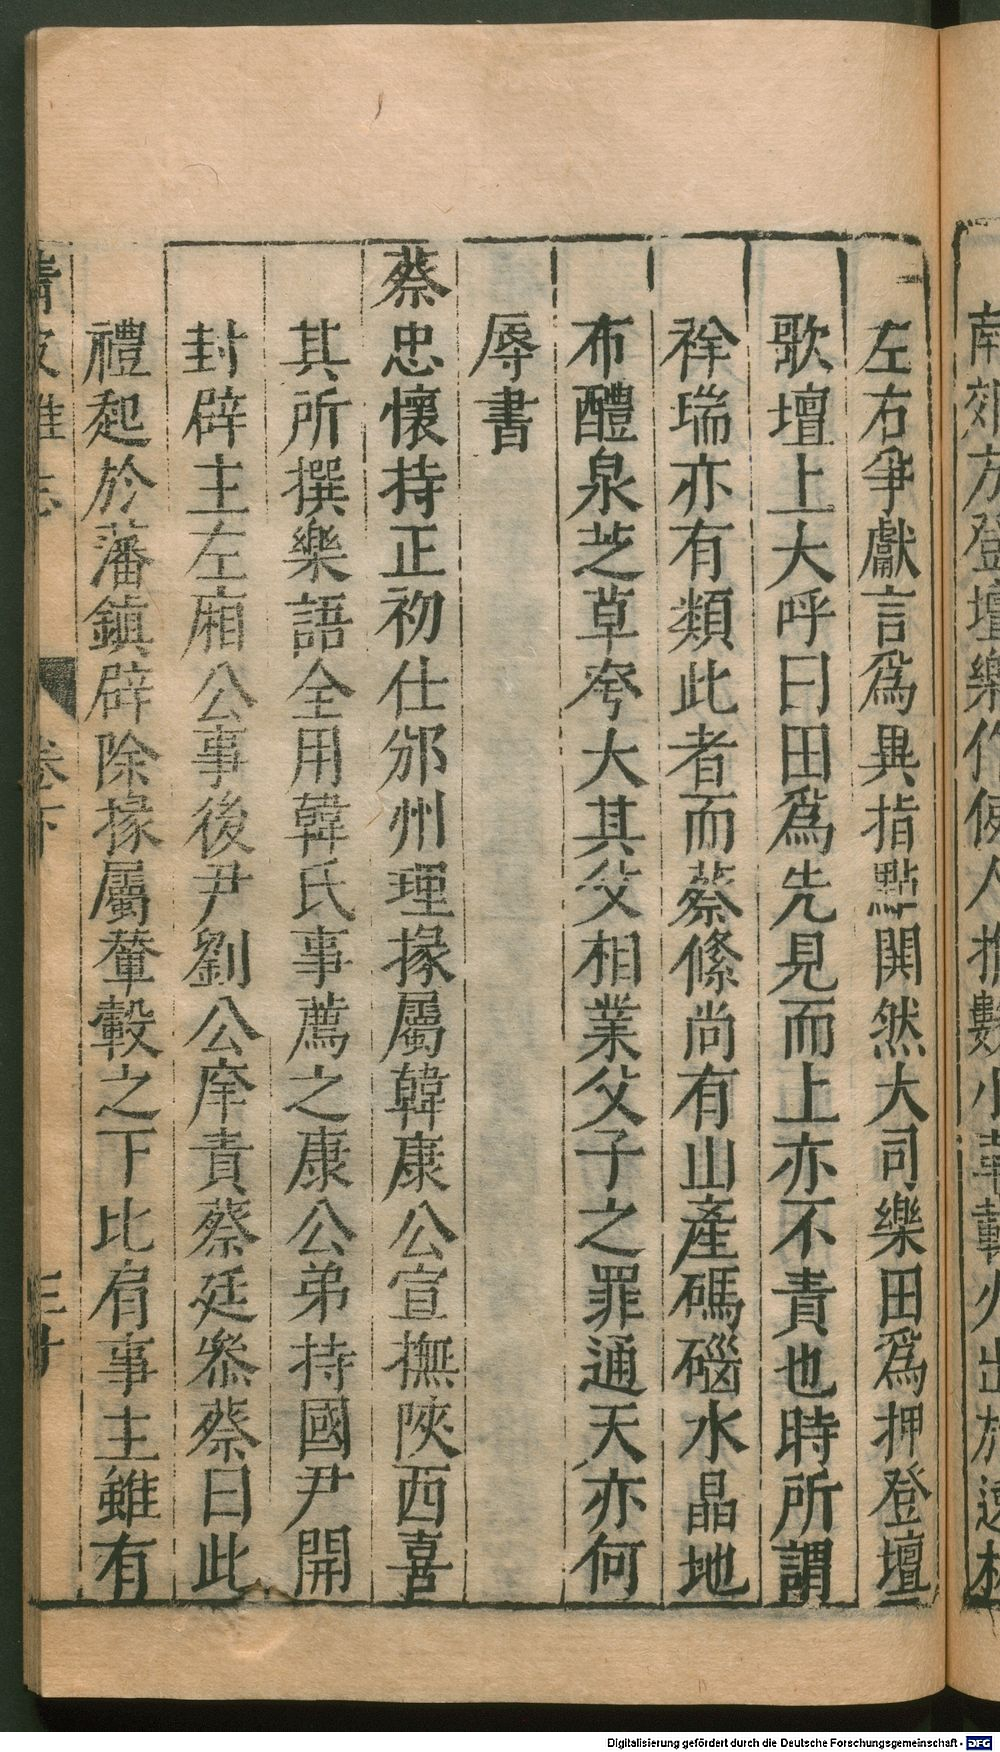 左右爭獻言爲異指點閧然大司樂田爲押登壇
歌壇上大呼曰田爲先見而上亦不責也時所謂
祥瑞亦有類此者而蔡絛尚有山產碼碯水晶地
布醴泉芝草夸大其父相業父子之罪通天亦何
辱書
蔡忠懷持正初仕邠州理掾屬韓康公宣撫陝西喜
其所撰樂語全用韓氏事薦之康公弟持國尹開
封辟主左廂公事後尹劉公庠責蔡廷參蔡曰此
禮起於藩鎮辟除掾屬輦轂之下比肩事主雖有
清波雜志 卷下
Digitalisierung gefördert durch die Deutsche Forschungsgemeinschaft - DFG